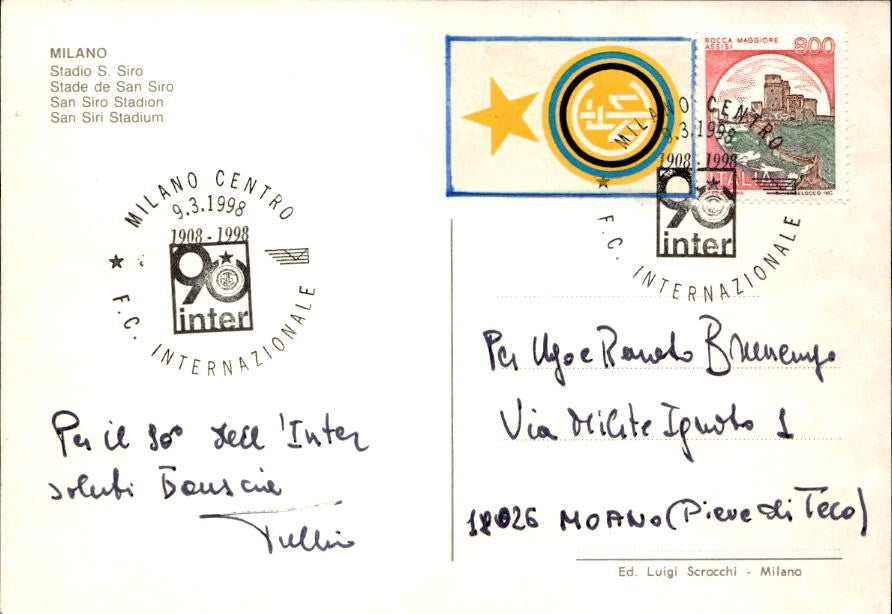 MILANO
Stadio S. Siro
Stade de San Siro
San Siro Stadion
San Siri Stadium
ROCCA MAGGIORE
ASSISI
800
ITALIA
MILANO CENTRO
9.3.1998
1908-1998
90
inter
F.C. INTERNAZIONALE
MILANO CENTRO
9.3.1998
1908-1998
90
inter
F.C. INTERNAZIONALE
Per il 90° dell'Inter
saluti
Tullio
Per Ugo e Renato
Via Milite Ignoto 1
18026 MOANO (Pieve di Teco)
Ed. Luigi Scrocchi - Milano